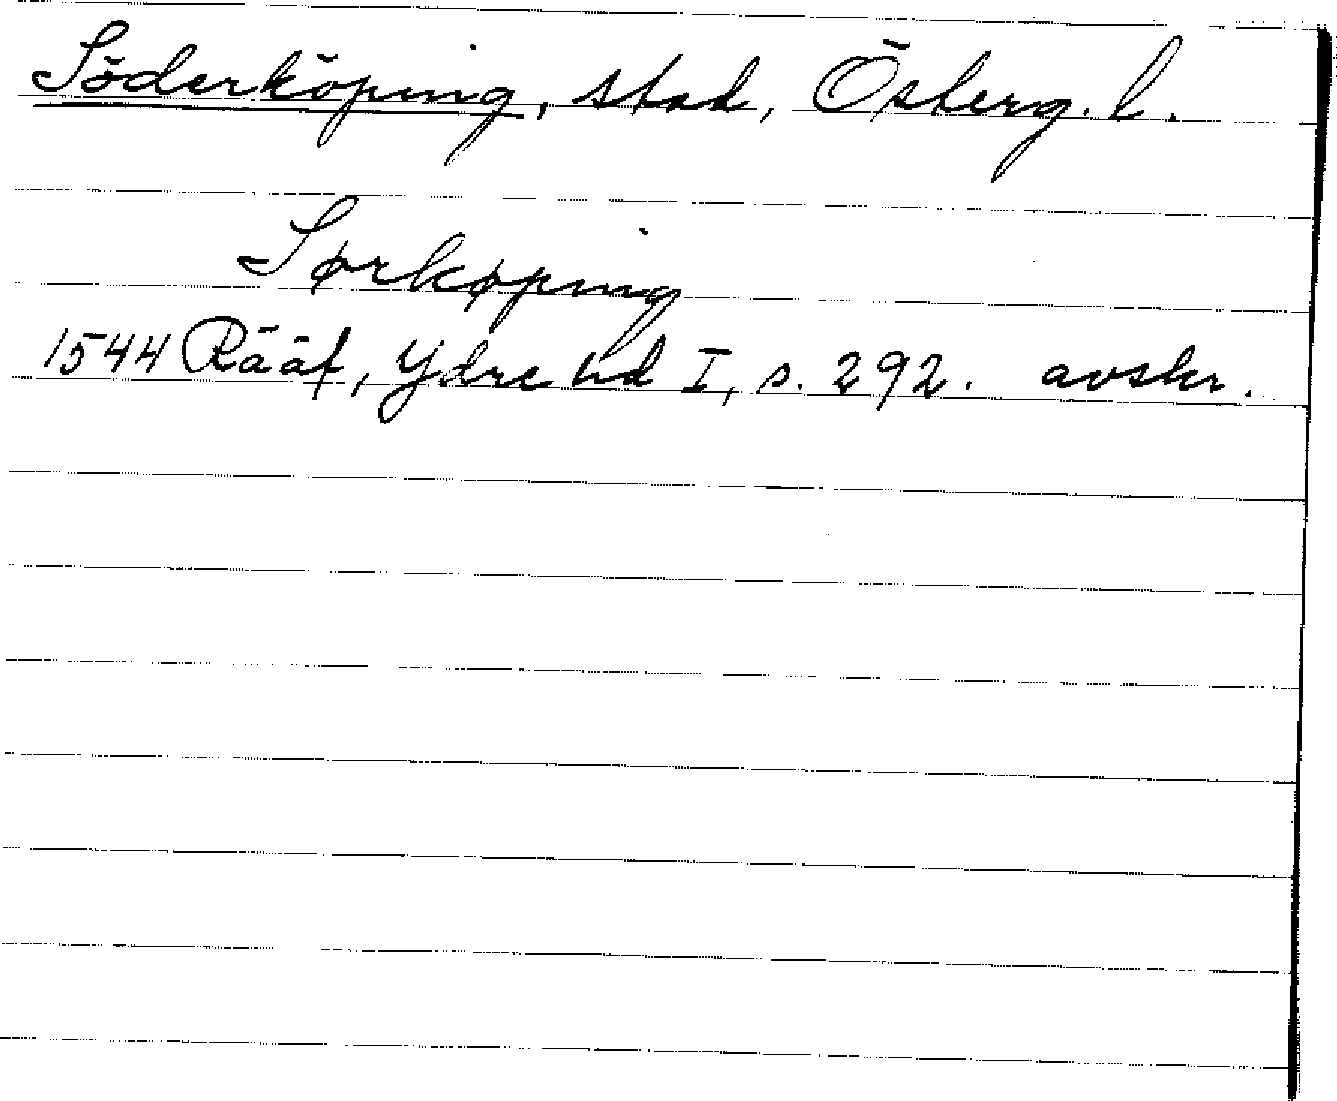 Söderköping, stad, Österg. l.
Sørkøping
1544 Rääf, Ydre hd I, s. 292. avskr.